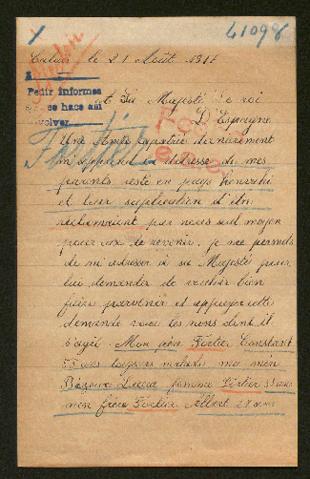 41098
Calais le 21 Août 1917
Pedir informes
se hace así
A Sa Majesté le roi
D'Espagne
Une Amie rapatriée dernièrement
m'apprend la détresse de mes
parents resté en pays Envahi
et leur suplication d'être
réclamaient par nous seul moyen
pour eux de revenir. je me permets
de m'adresser à sa Majesté pour
lui demander de vouloir bien
faire parvenir et appuyer cette
demande voici les noms dont il
s'agit. Mon père Fortier Constant
ans toujours malade ma mère
femme Fortier ans
mon frère Fortier Albert 28 ans